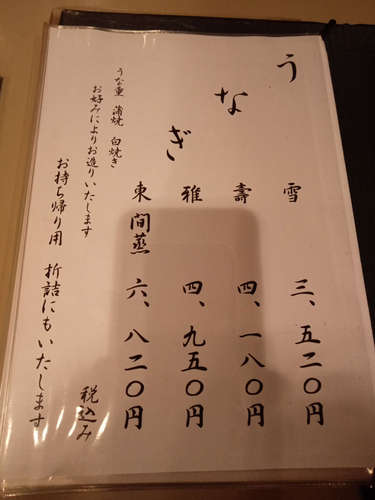 うなぎ
雪 三、五二〇円
壽 四、一八〇円
雅 四、九五〇円
東間蒸 六、八二〇円
税込み
うな重 蒲焼 白焼き
お好みによりお造りいたします
お持ち帰り用 折詰にもいたします